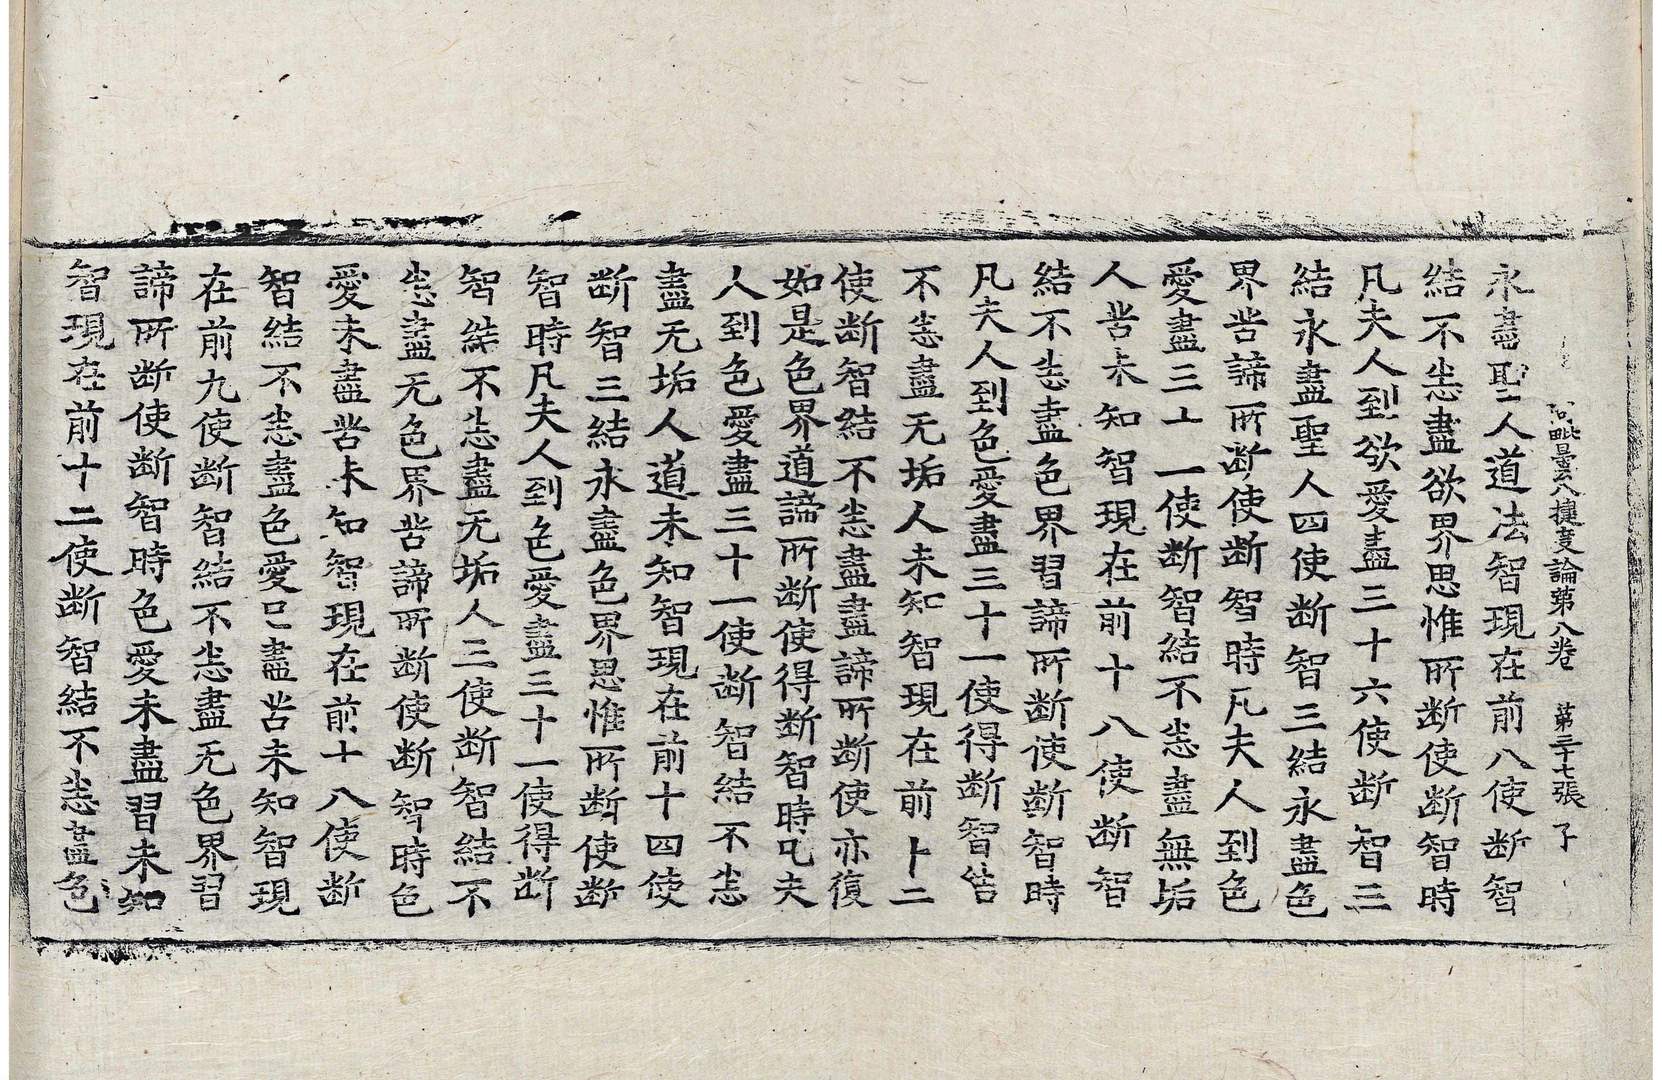 阿毗曇八揵度論第八卷 第三十七張 子
永盡聖人道法智現在前八使斷智
結不𢗞盡欲界思惟所斷使斷智時
凡夫人到欲愛盡三十六使斷智三
結永盡聖人四使斷智三結永盡色
界苦諦所斷使斷智時凡夫人到色
愛盡三十一使斷智結不𢗞盡無垢
人苦未知智現在前十八使斷智
結不𢗞盡色界習諦所斷使斷智時
凡夫人到色愛盡三十一使得斷智結
不𢗞盡无垢人未知智現在前十二
使斷智結不𢗞盡盡諦所斷使亦復
如是色界道諦所斷使得斷智時凡夫
人到色愛盡三十一使斷智結不𢗞
盡无垢人道未知智現在前十四使
斷智三結永盡色界思惟所斷使斷
智時凡夫人到色愛盡三十一使得斷
智結不𢗞盡无垢人三使斷智結不
𢗞盡无色界苦諦所斷使斷智時色
愛未盡苦未知智現在前十八使斷
智結不𢗞盡色愛已盡苦未知智現
在前九使斷智結不𢗞盡无色界習
諦所斷使斷智時色愛未盡習未知
智現在前十二使斷智結不𢗞盡色